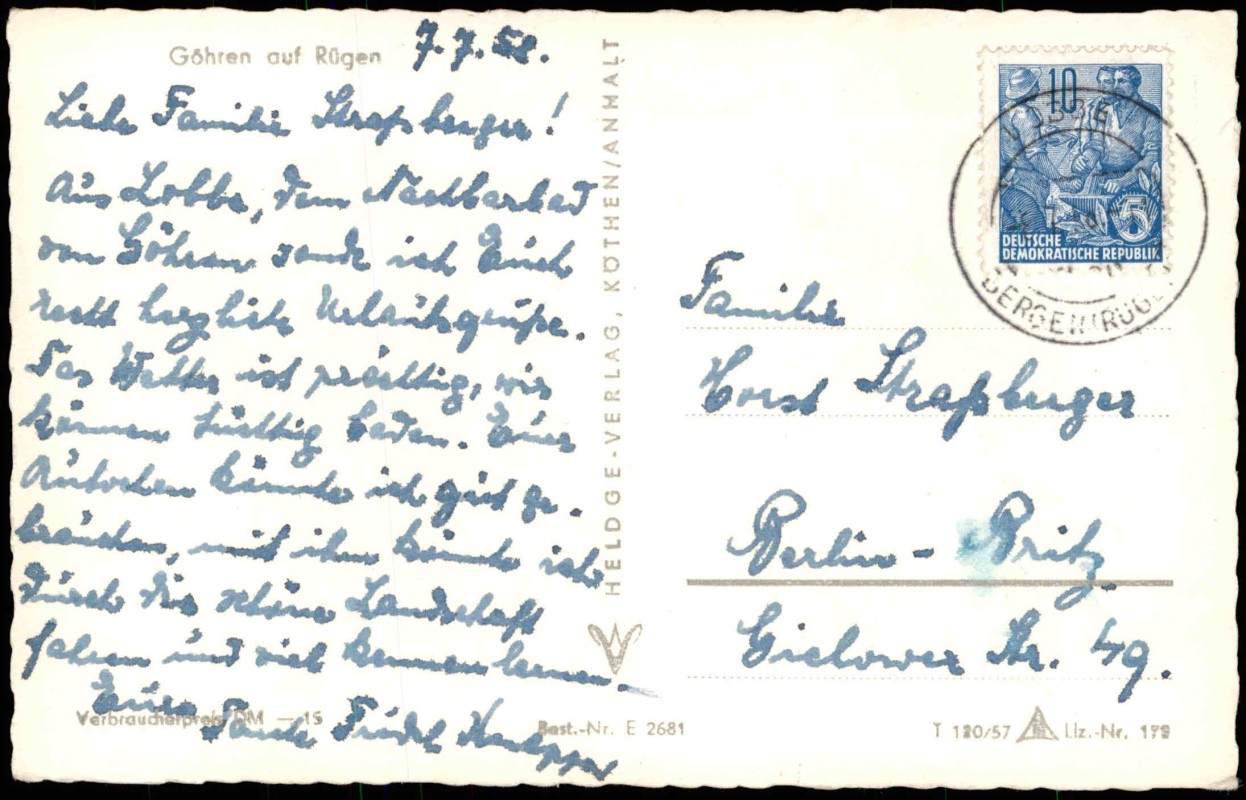 Göhren auf Rügen
7.7.58.
Liebe Familie Straßberger!
Aus Lobbe, dem Nachbarbad
von Göhren sende ich Euch
recht herzliche Urlaubsgrüße.
Das Wetter ist prächtig, wir
können tüchtig baden. Euer
Autochen könnte ich gut ge-
brauchen, mit ihm könnte ich
durch die schöne Landschaft
fahren und viel kennen lernen.
Eure Tante Friedel
Verbraucherpreis DM — 15
Best.-Nr. E 2681
HELDGE-VERLAG, KÖTHEN/ANHALT
10
5
DEUTSCHE
DEMOKRATISCHE REPUBLIK
BERGEN (RÜGEN)
Familie
Horst Straßberger
Berlin - Britz
Gielower Str. 49.
T 120/57
Liz.-Nr. 199